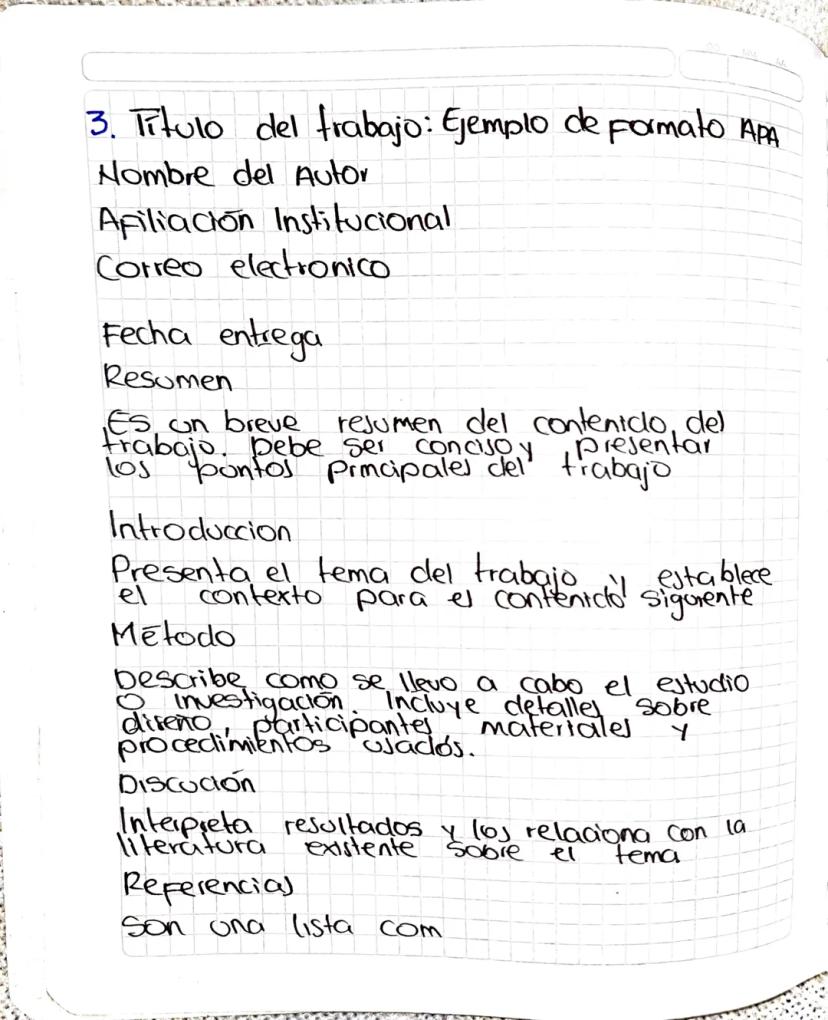 3. Título del trabajo: Ejemplo de formato APA
Nombre del Autor
Afiliación Institucional
Correo electronico
Fecha entrega
Resumen
Es un breve resumen del contenido del
trabajo. Debe ser conciso y presentar
los puntos principales del trabajo
Introduccion
Presenta el tema del trabajo y establece
el contexto para el contenido siguiente
Método
Describe como se llevo a cabo el estudio
o investigación. Incluye detalles sobre
diseño, participantes materiales y
procedimientos usados.
Discución
Interpreta resultados y los relaciona con la
literatura existente sobre el tema
Referencias
Son una lista com